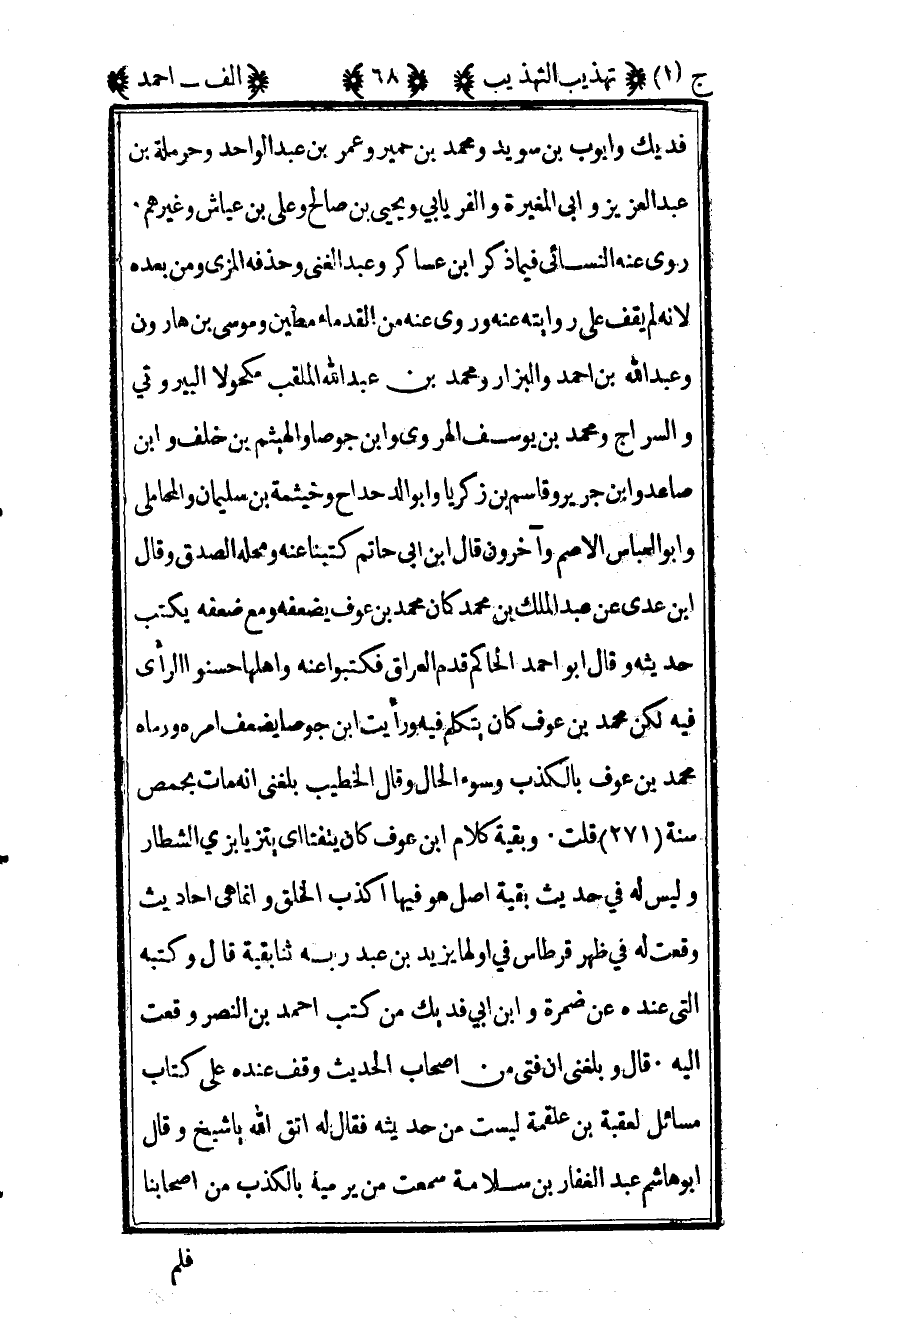 ج (١) تهذيب التهذيب ٦٨ الف ـ احمد
فديك وايوب بن سويد ومحمد بن حمير وعمر بن عبد الواحد وحرملة بن
عبد العزيز و ابى المغيرة والفريابي ويحيى بن صالح وعلى بن عياش وغيرهم .
روى عنه النسائى فيما ذكر ابن عساكر وعبد الغنى وحذفه المزى ومن بعده
لانه لم يقف على روايته عنه وروى عنه من القدماء مطين وموسى بن هارون
وعبد الله بن احمد والبزار ومحمد بن عبد الله الملقب مكحولا البيروتي
والسراج ومحمد بن يوسف الهروى وابن جوصا والهيثم بن خلف وابن
صاعد وابن جرير وقاسم بن زكريا وابو الدحداح وخيثمة بن سليمان والمحاملى
وابو العباس الاصم وآخرون قال ابن ابى حاتم كتبنا عنه ومحله الصدق وقال
ابن عدى عن عبد الملك بن محمد كان محمد بن عوف يضعفه ومع ضعفه يكتب
حديثه وقال ابو احمد الحاكم قدم العراق فكتبوا عنه واهلها حسنوا الرأى
فيه لكن محمد بن عوف كان يتكلم فيه ورأيت ابن جوصا يضعف امره ورماه
محمد بن عوف بالكذب وسوء الحال وقال الخطيب بلغنى انه مات بحمص
سنة (٢٧١) قلت . وبقية كلام ابن عوف كان يتفتا اى يتزيا بزي الشطار
وليس له في حديث بقية اصل هو فيها اكذب الخلق و انما هى احاديث
وقعت له في ظهر قرطاس في اولها يزيد بن عبد ربه ثنا بقية قال وكتبه
التى عنده عن ضمرة و ابن ابي فديك من كتب احمد بن النصر وقعت
اليه . قال وبلغنى ان فتى من اصحاب الحديث وقف عنده على كتاب
مسائل لعقبة بن علقمة ليست من حديثه فقال له اتق الله ياشيخ وقال
ابو هاشم عبد الغفار بن سلامة سمعت من يرميه بالكذب من اصحابنا
فلم